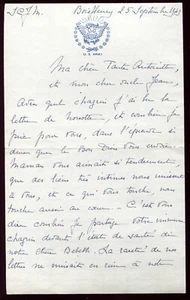 Ma chère Tante Antoinette,
et mon cher oncle Jean,
Avec quel chagrin j'ai lu la
lettre de et combien je
prie pour vous, dans l'épreuve si
dure que le Bon Dieu vous envoie.
Maman vous aimait si tendrement,
que ses liens très intimes nous unissent
à vous, et ce qui vous touche nous
touche aussi au cœur. C'est vous
dire combien je partage votre immense
chagrin devant l'état de santé de
notre chère La rareté de nos
lettres ne mesurait en rien à notre